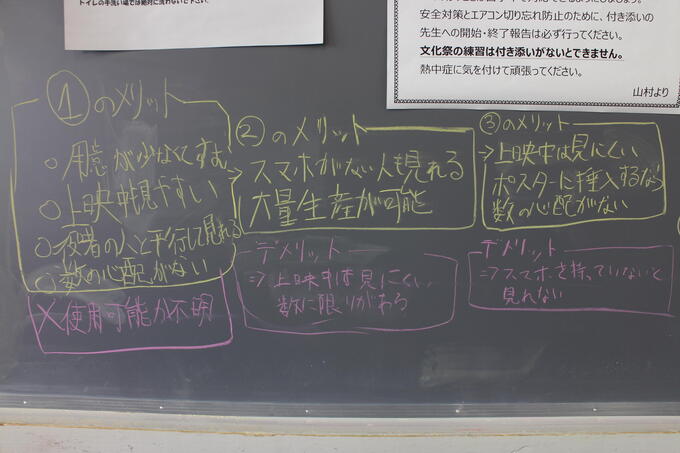 トイレの手洗い場では絶対に洗わないで下さい。
安全対策とエアコン切り忘れ防止のために、付き添いの
先生への開始・終了報告は必ず行ってください。
文化祭の練習は付き添いがないとできません。
熱中症に気を付けて頑張ってください。
山村より
①のメリット
○用意が少なくてすむ
○上映中見やすい
○役者の人と平行して見れる
○数の心配がない
×使用可能か不明
②のメリット
→スマホがない人も見れる
大量生産が可能
デメリット
⇒上映中は見にくい
数に限りがある
③のメリット
→上映中は見にくい
ポスターに挿入するなら
数の心配がない
デメリット
⇒スマホを持っていないと
見れない